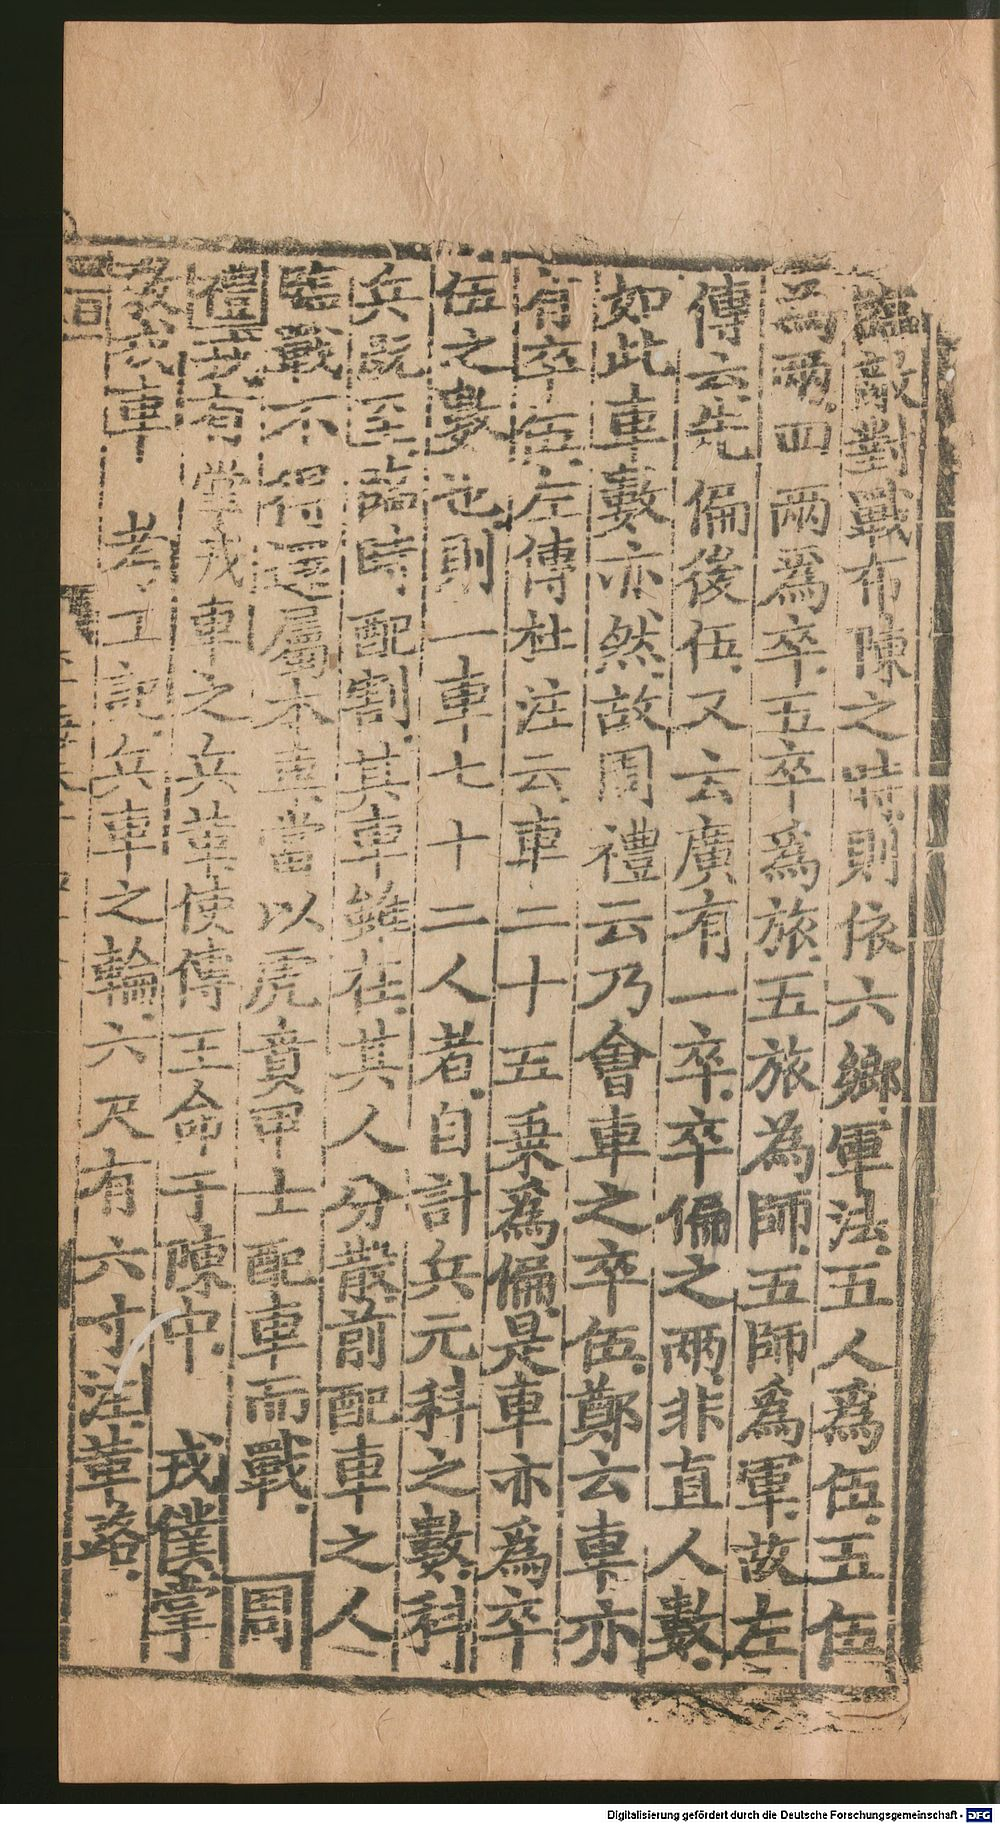 臨敵對戰布陳之時則依六鄉軍法五人爲伍五伍
爲兩四兩爲卒五卒爲旅五旅為師五師爲軍故左
傳云先偏後伍又云廣有一卒卒偏之兩非直人數
如此車數亦然故周禮云乃會車之卒伍鄭云車亦
有卒伍左傳杜注云車二十五乗爲偏是車亦爲卒
伍之數也則一車七十二人者自計兵元科之數科
兵既至臨時配割其車雖在其人分散前配車之人
臨戰不得還屬本車當以虎賁甲士配車而戰 周
禮 有掌戎車之兵革使傳王命于陳中 戎僕掌
戎車 考工記兵車之輪六尺有六寸注革路
Digitalisierung gefördert durch die Deutsche Forschungsgemeinschaft - DFG